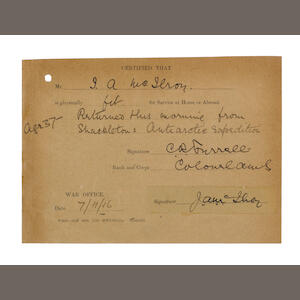 CERTIFIED THAT
Mr. J. A McIlroy
is physically fit for Service at Home or Abroad.
Age 37 Returned this morning from
Shackletons Antarctic Expedition
Signature
Rank and Corps Colonel AMS
WAR OFFICE,
Date 7/11/16 Signature J.A McIlroy